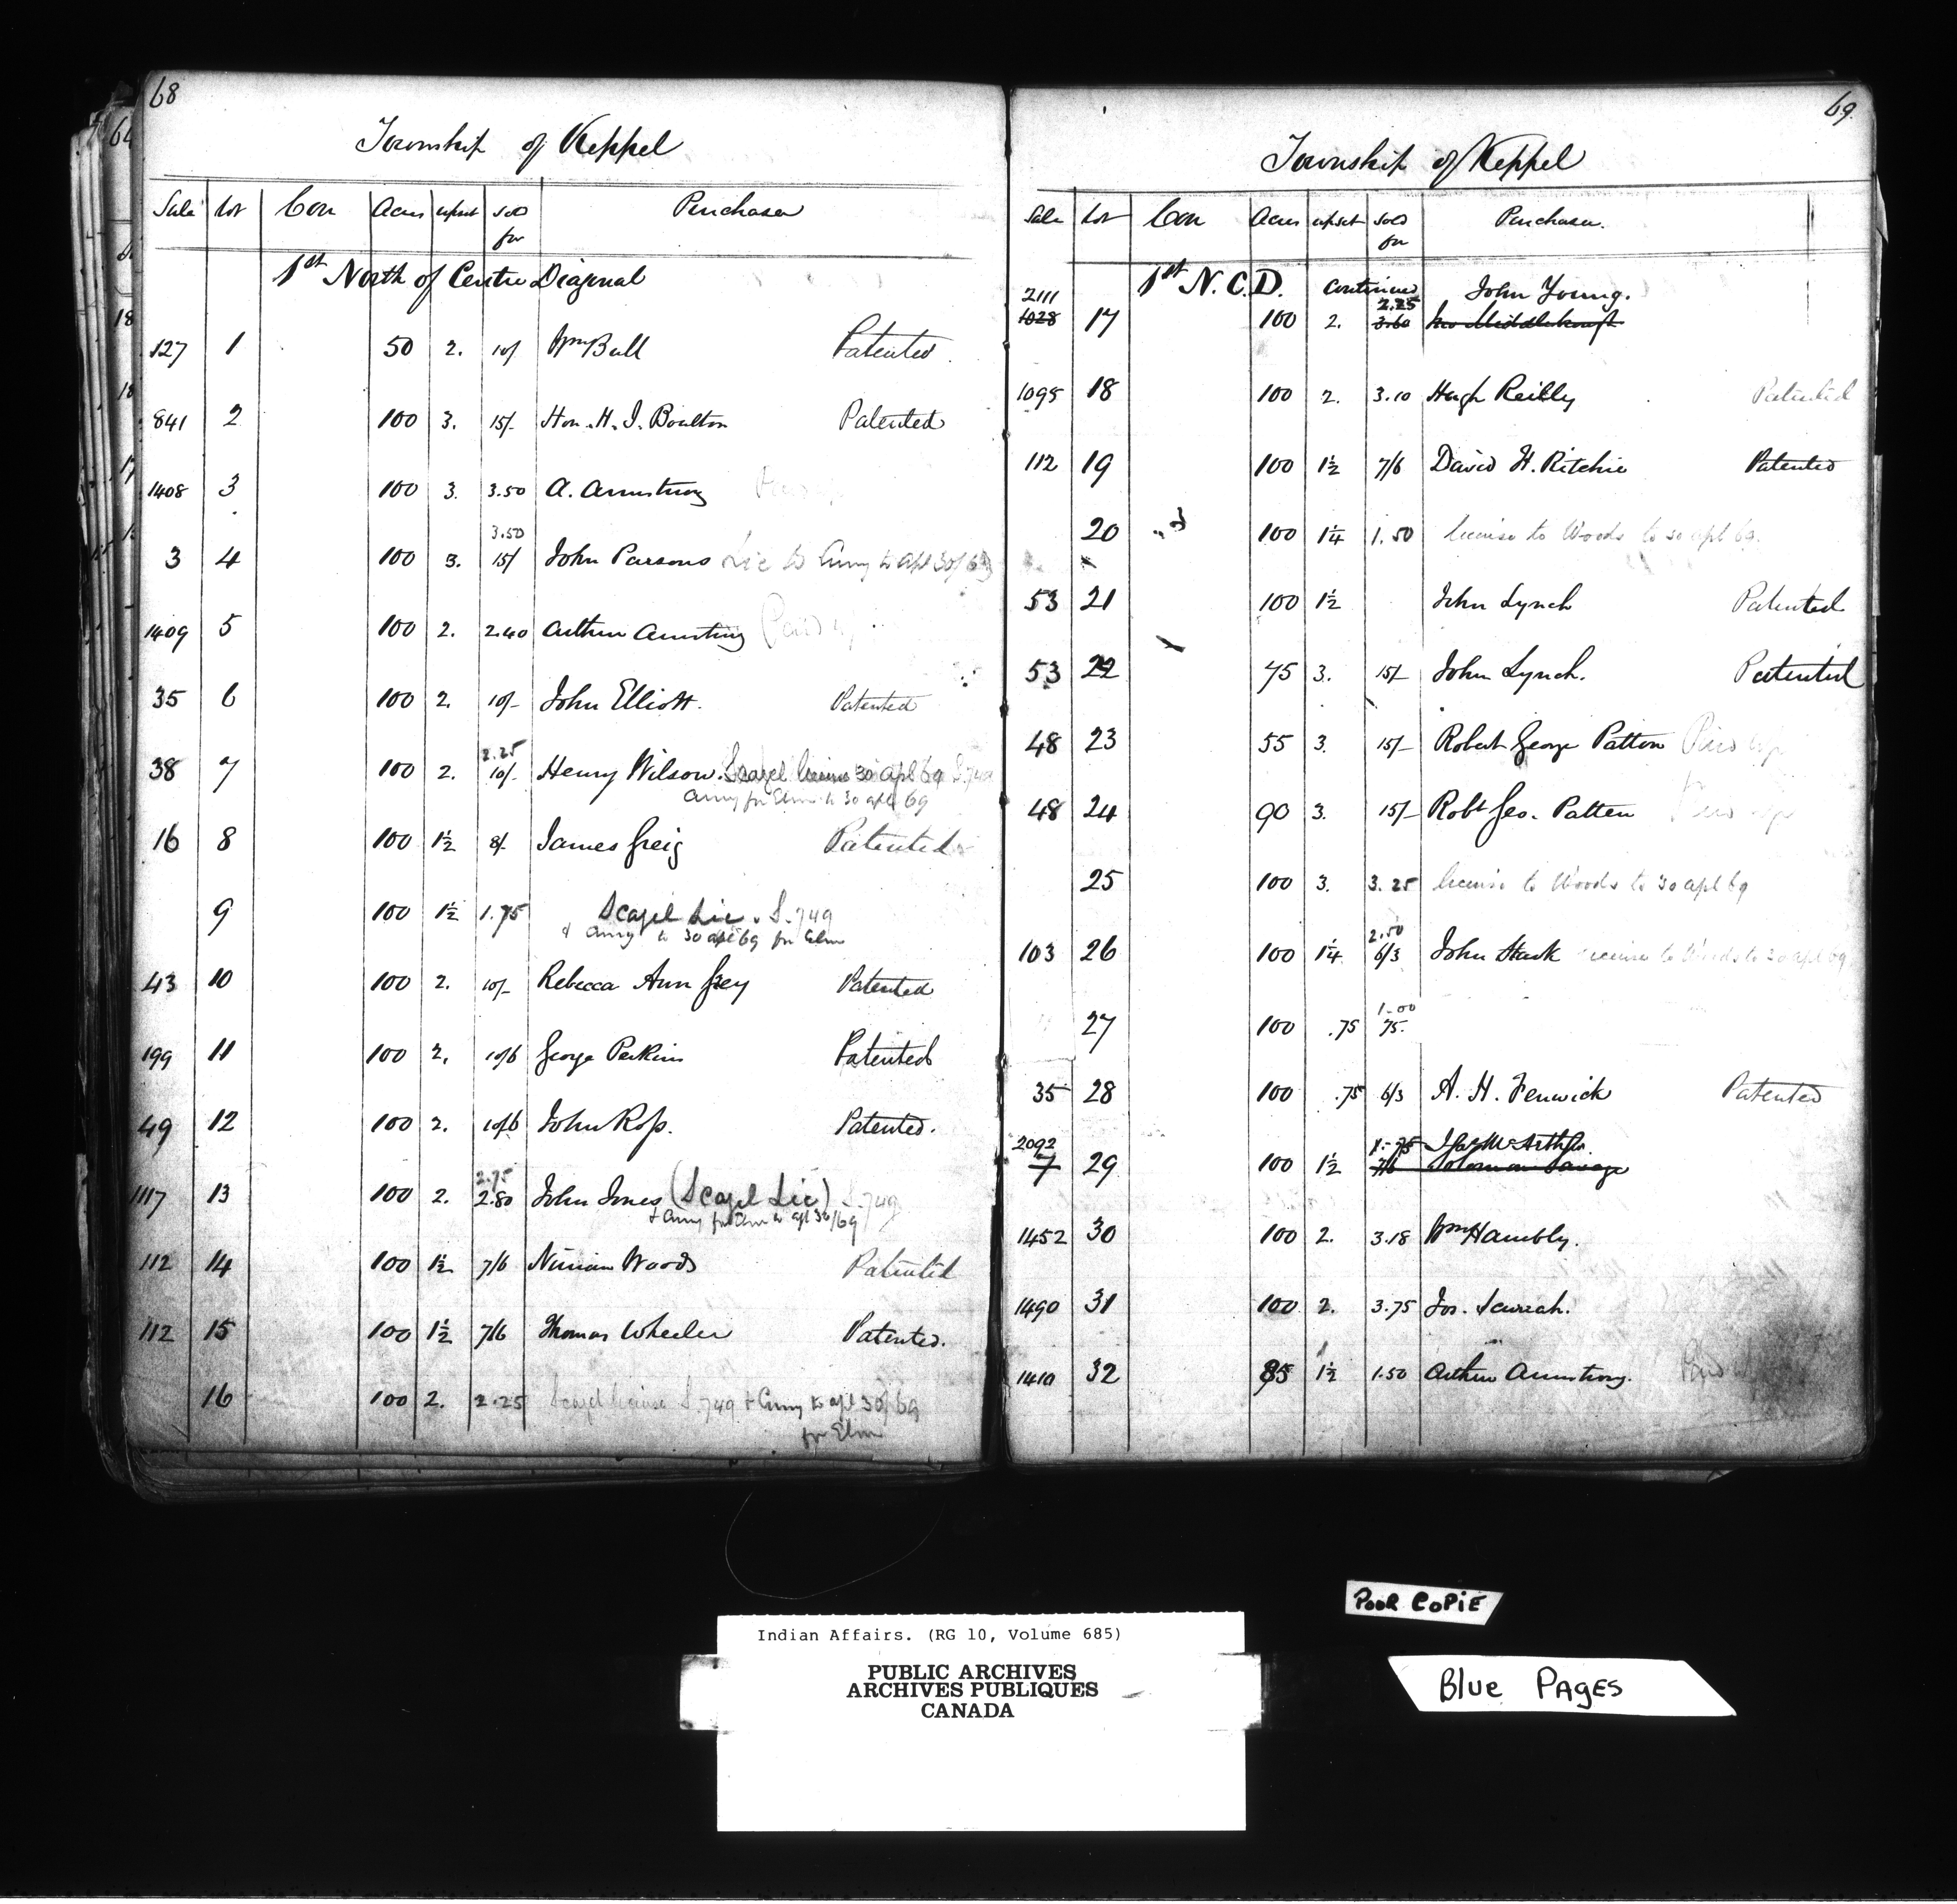 68
Township of Keppel
Sale Lot Con Acres upset sold for Purchaser
1st North of Centre Diagonal
127 1 50 2. 10/ Wm Bull Patented
841 2 100 3. 15/- Hon. H. J. Boulton Patented
1408 3 100 3. 3.50 A. Armstrong
3.50
3 4 100 3. 15/ John Parsons Lic to Amy to apl 30/69
1409 5 100 2. 2.40 Arthur Armstrong Paid up
35 6 100 2. 10/- John Elliott. Patented
2.25
38 7 100 2. 10/- Henry Wilson. Scazel license 30 apl 69 S.749
Amy for Elm to 30 apl 69
16 8 100 1½ 8/- James Greig Patented
9 100 1½ 1.75 Scazel Lic. S.749
& Amy to 30 apl 69 for Elm
43 10 100 2. 10/- Rebecca Ann Grey Patented
199 11 100 2. 10/6 George Perkins Patented
49 12 100 2. 10/6 John Ross. Patented.
2.75
1117 13 100 2. 2.80 John Jones (Scazel Lic) S.749
& Amy for Elm to apl 30/69
112 14 100 1½ 7/6 Ninian Woods Patented
112 15 100 1½ 7/6 Thomas Wheeler Patented.
16 100 2. 2.25 Scazel license S.749 & Amy to apl 30/69
for Elm
69.
Township of Keppel
Sale Lot Con Acres upset sold for Purchaser.
1st N.C.D. Continued
2111 2.25 John Young.
1028 17 100 2. 3.60 Jno Middlebrough
1095 18 100 2. 3.10 Hugh Reilly Patented
112 19 100 1½ 7/6 David H. Ritchie Patented
20 100 1¼ 1.50 license to Woods to 30 apl 69.
53 21 100 1½ John Lynch Patented
53 22 75 3. 15/- John Lynch. Patented
48 23 55 3. 15/- Robert George Patton Paid up
48 24 90 3. 15/- Robt Geo. Patten Paid up
25 100 3. 3.25 license to Woods to 30 apl 69
2.50
103 26 100 1¼ 6/3 John Stark license to Woods to 30 apl 69
1.00
27 100 .75 75.
35 28 100 .75 6/3 A. H. Fenwick Patented
2092 1.75 McArthur
7 29 100 1½ 7/6 Solomon Savage
1452 30 100 2. 3.18 Wm Hambly.
1490 31 100 2. 3.75 Jos.
1410 32 85 1½ 1.50 Arthur Armstrong. Paid
POOR COPiE
Blue PAGES
Indian Affairs. (RG 10, Volume 685)
PUBLIC ARCHIVES
ARCHIVES PUBLIQUES
CANADA